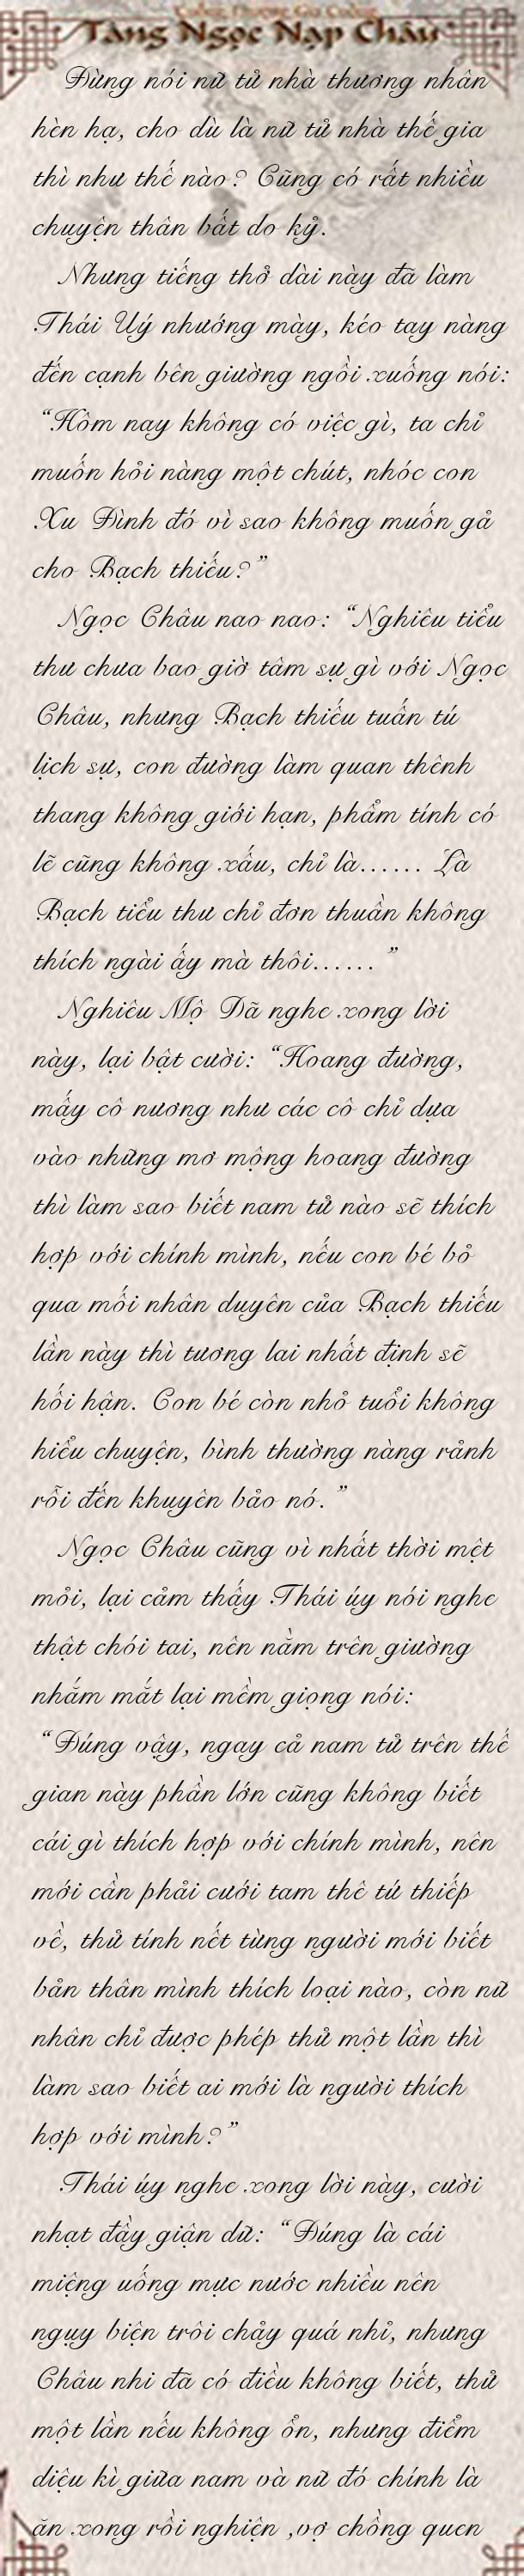 Tàng Ngọc Nạp Châu
Đừng nói nữ tử nhà thương nhân
hèn hạ, cho dù là nữ tử nhà thế gia
thì như thế nào? Cũng có rất nhiều
chuyện thân bất do kỷ.
Nhưng tiếng thở dài này đã làm
Thái Uý nhướng mày, kéo tay nàng
đến cạnh bên giường ngồi xuống nói:
“Hồm nay không có việc gì, ta chỉ
muốn hỏi nàng một chút, nhóc con
Xu Đình đó vì sao không muốn gả
cho Bạch thiếu?”
Ngọc Châu nao nao: “Nghiêu tiểu
thư chưa bao giờ tâm sự gì với Ngọc
Châu, nhưng Bạch thiếu tuấn tú
lịch sự, con đường làm quan thênh
thang không giới hạn, phẩm tính có
lẽ cũng không xấu, chỉ là...... Là
Bạch tiểu thư chỉ đơn thuần không
thích ngài ấy mà thôi...... ”
Nghiêu Mộ Dã nghe xong lời
này, lại bật cười: “Hoang đường,
mấy cô nương như các cô chỉ dựa
vào những mơ mộng hoang đường
thì làm sao biết nam tử nào sẽ thích
hợp với chính mình, nếu con bé bỏ
qua mối nhân duyên của Bạch thiếu
lần này thì tương lai nhất định sẽ
hối hận. Con bé còn nhỏ tuổi không
hiểu chuyện, bình thường nàng rảnh
rỗi đến khuyên bảo nó. ”
Ngọc Châu cũng vì nhất thời mệt
mỏi, lại cảm thấy Thái úy nói nghe
thật chói tai, nên nằm trên giường
nhắm mắt lại mềm giọng nói:
“Đúng vậy, ngay cả nam tử trên thế
gian này phần lớn cũng không biết
cái gì thích hợp với chính mình, nên
mới cần phải cưới tam thê tứ thiếp
về, thử tính nết từng người mới biết
bản thân mình thích loại nào, còn nữ
nhân chỉ được phép thử một lần thì
làm sao biết ai mới là người thích
hợp với mình?”
Thái úy nghe xong lời này, cười
nhạt đầy giận dữ: “Đúng là cái
miệng uống mực nước nhiều nên
ngụy biện trôi chảy quá nhỉ, nhưng
Châu nhi đã có điều không biết, thử
một lần nếu không ổn, nhưng điểm
diệu kì giữa nam và nữ đó chính là
ăn xong rồi nghiện ,vợ chồng quen